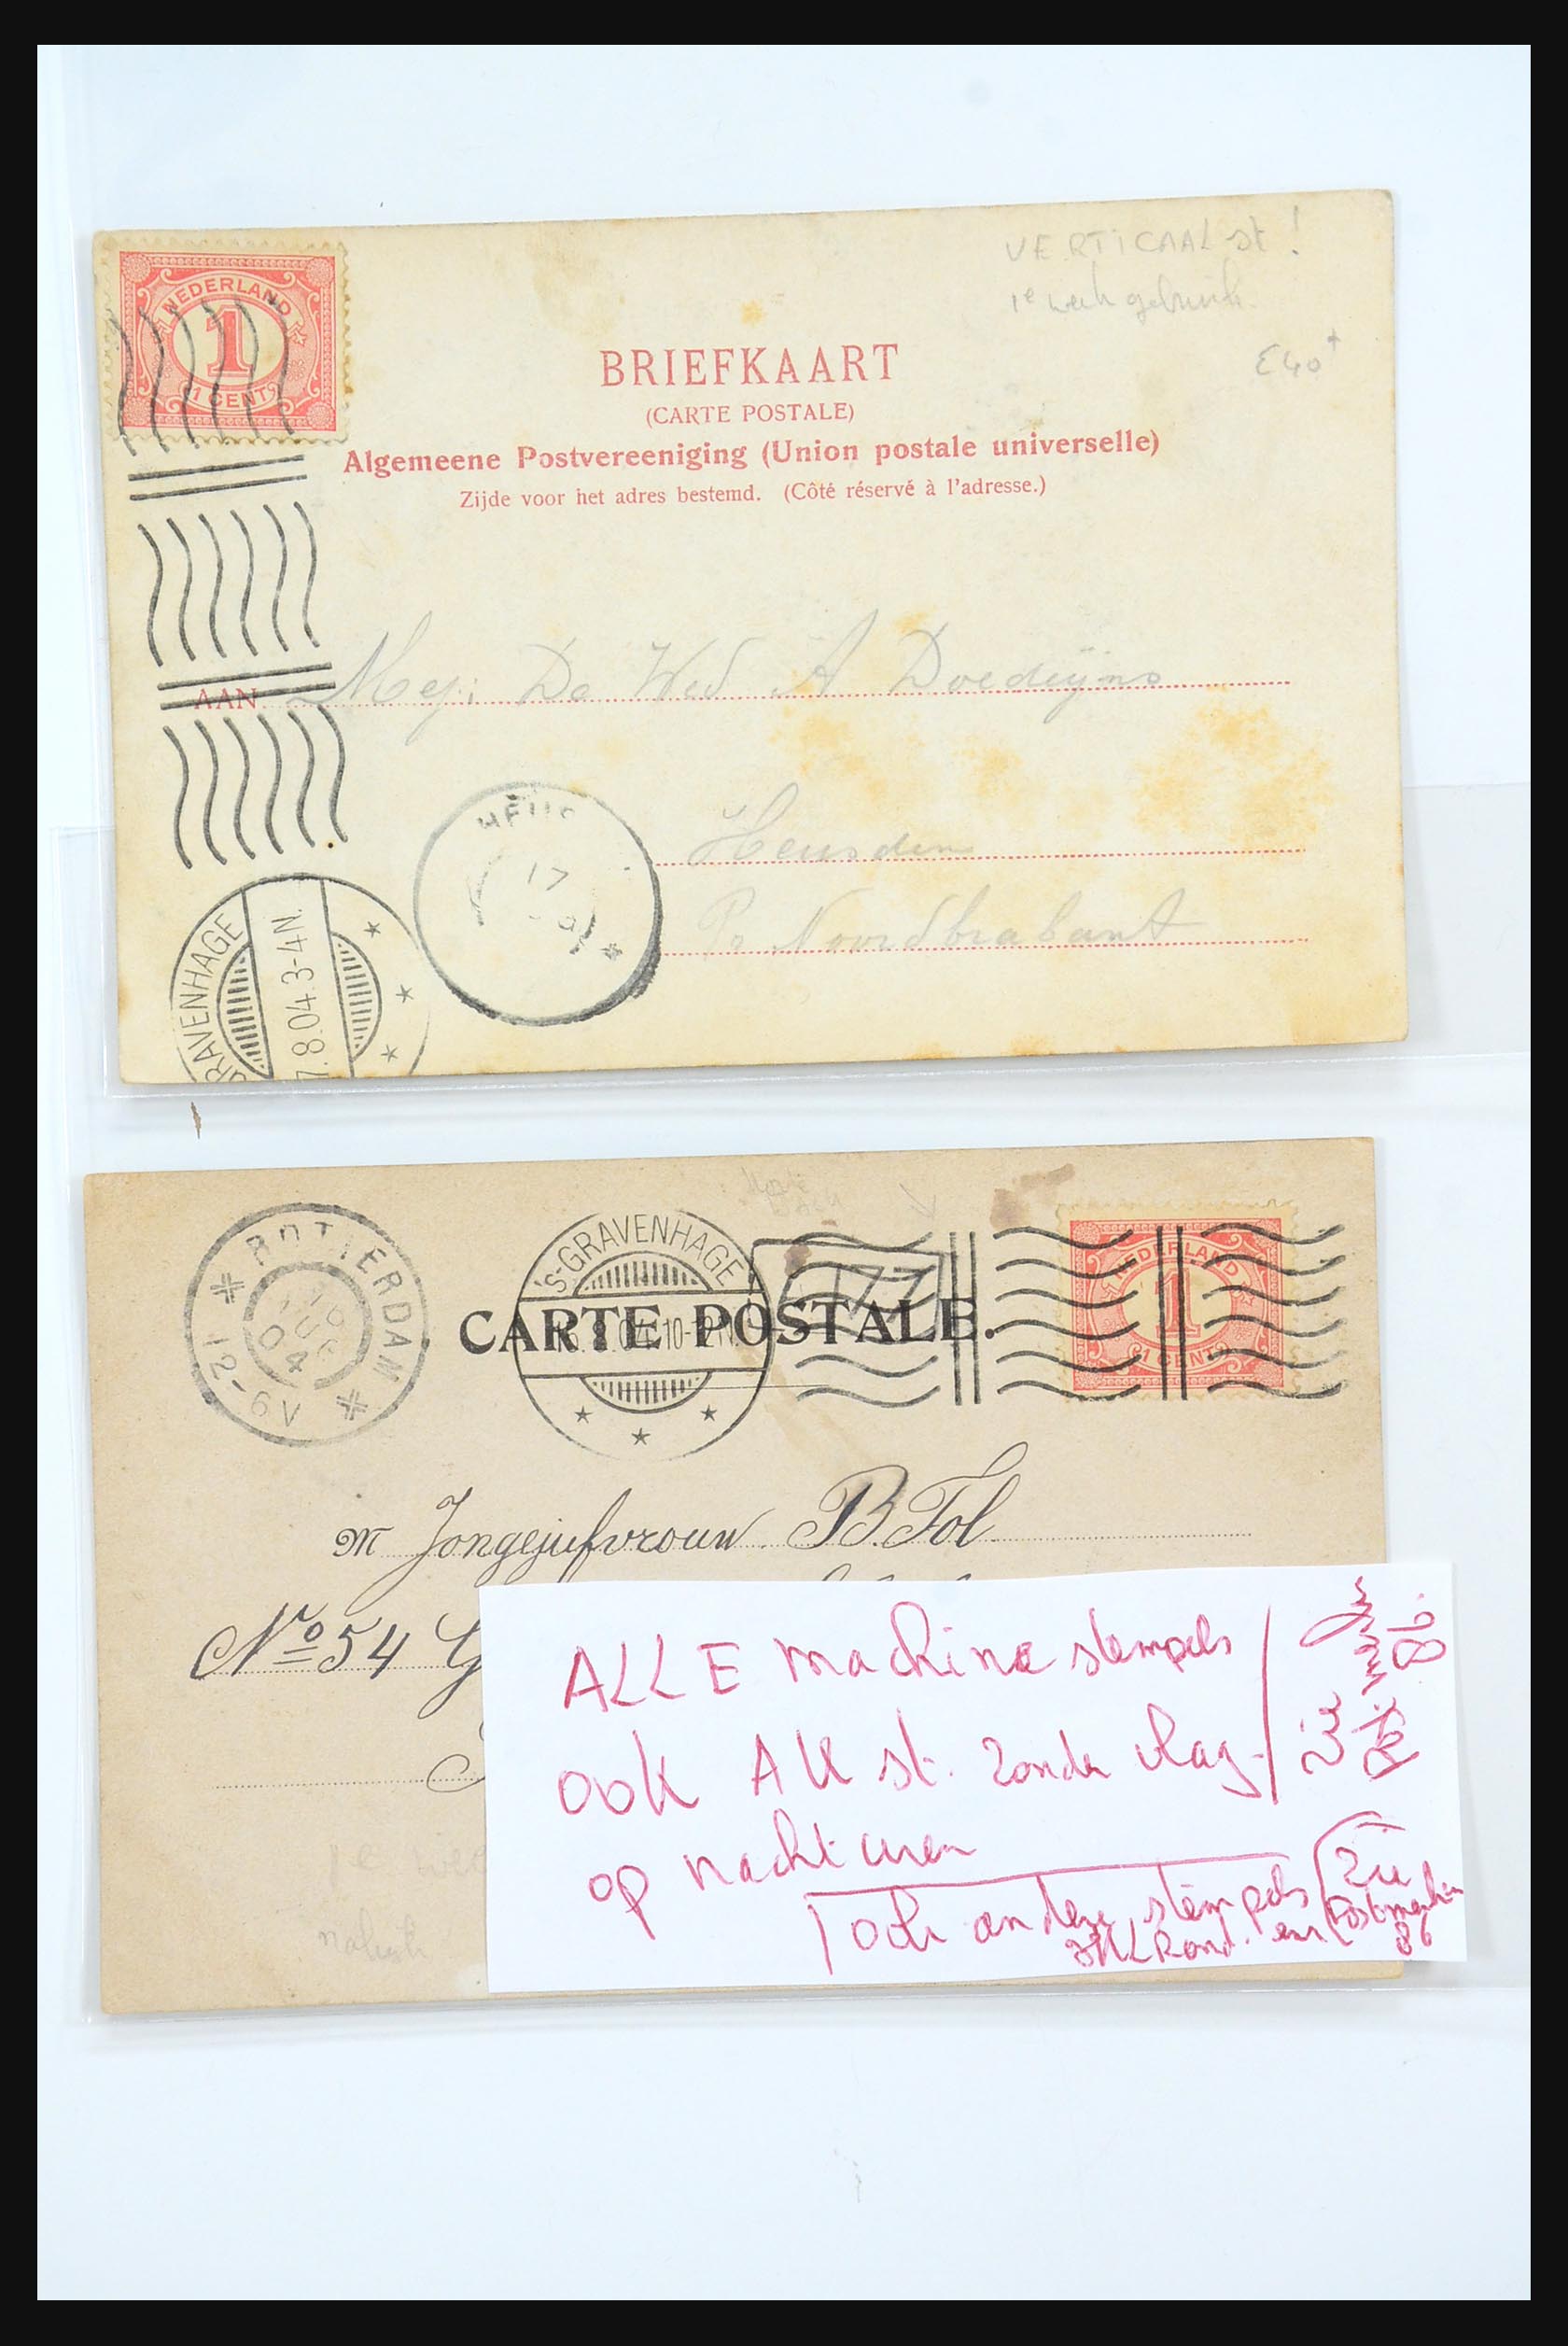 VERTICAAL st!
1e week gebruik.
E40+
NEDERLAND
1
1 CENT
BRIEFKAART
(CARTE POSTALE)
Algemeene Postvereeniging (Union postale universelle)
Zijde voor het adres bestemd. (Côté réservé à l'adresse.)
AAN Mej: De Wed A Doedijns
Heusden
Pr Noordbrabant
HEUS
17
RAVENHAGE
7.8.04.3-4N.
ROTTERDAM
10
AUG
04
12-6V
'S-GRAVENHAGE
10-12N.
177
NEDERLAND
1
1 CENT
CARTE POSTALE.
M Jongejufvrouw B. Tol
No 54 G
1e wee
ALLE machine stempels
ook AK st. zonder vlag
op nacht uren
ook andere stempels
Rond. en
zie
Postmerken
86
zie
86.